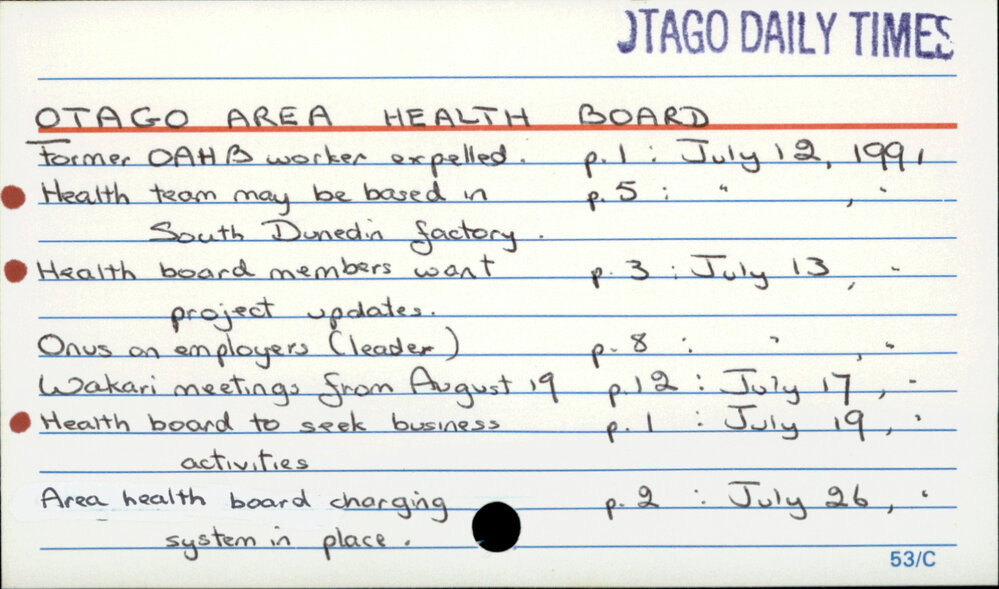 OTAGO DAILY TIMES
OTAGO AREA HEALTH BOARD
Former OAHB worker expelled. p.1 : July 12, 1991
Health team may be based in p.5 : " , "
South Dunedin factory.
Health board members want p. 3 : July 13, "
project updates.
Onus on employers (leader) p. 8 : " , "
Wakari meetings from August 19 p.12 : July 17, "
Health board to seek business p. 1 : July 19, "
activities
Area health board charging p. 2 : July 26, "
system in place.
53/C